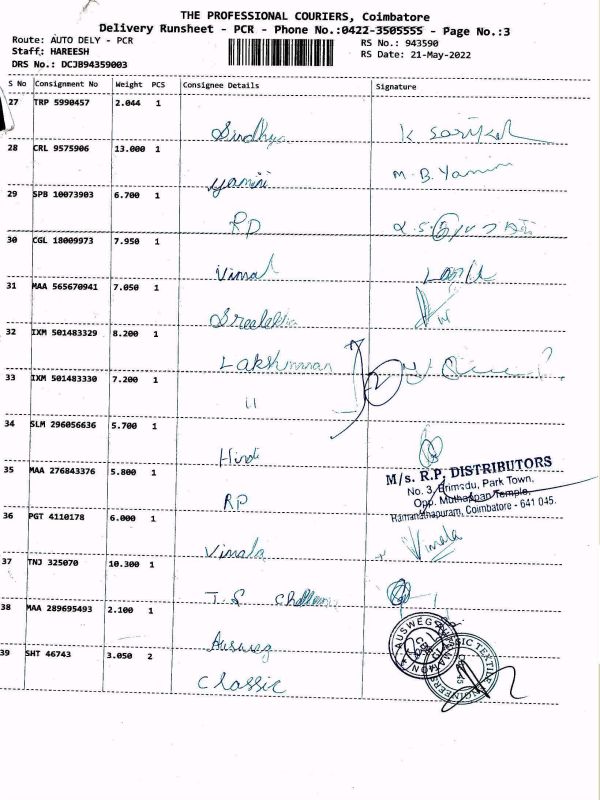 THE PROFESSIONAL COURIERS, Coimbatore
Delivery Runsheet - PCR - Phone No.:0422-3505555 - Page No.:3
Route: AUTO DELY - PCR
RS No.: 943590
Staff: HAREESH
RS Date: 21-May-2022
DRS No.: DCJB94359003
S No Consignment No Weight PCS Consignee Details Signature
27 TRP 5990457 2.044 1
Sindhya
28 CRL 9575906 13.000 1
yamini M.B. Yamini
29 SPB 10073903 6.700 1
RP
30 CGL 18009973 7.950 1
Vimal
31 MAA 565670941 7.050 1
Sreelekha
32 IXM 501483329 8.200 1
Lakshmman
33 IXM 501483330 7.200 1
11
34 SLM 296056636 5.700 1
Hindi
M/s. R.P. DISTRIBUTORS
35 MAA 276843376 5.800 1
No. 3, Brimsdu, Park Town,
RP
Opp. Muthappan Temple,
Ramanathapuram, Coimbatore - 641 045.
36 PGT 4110178 6.000 1
Vimala Vimala
37 TNJ 325070 10.300 1
T.S
38 MAA 289695493 2.100 1
Ausweg
AUSWEG
39 SHT 46743 3.050 2
Classic